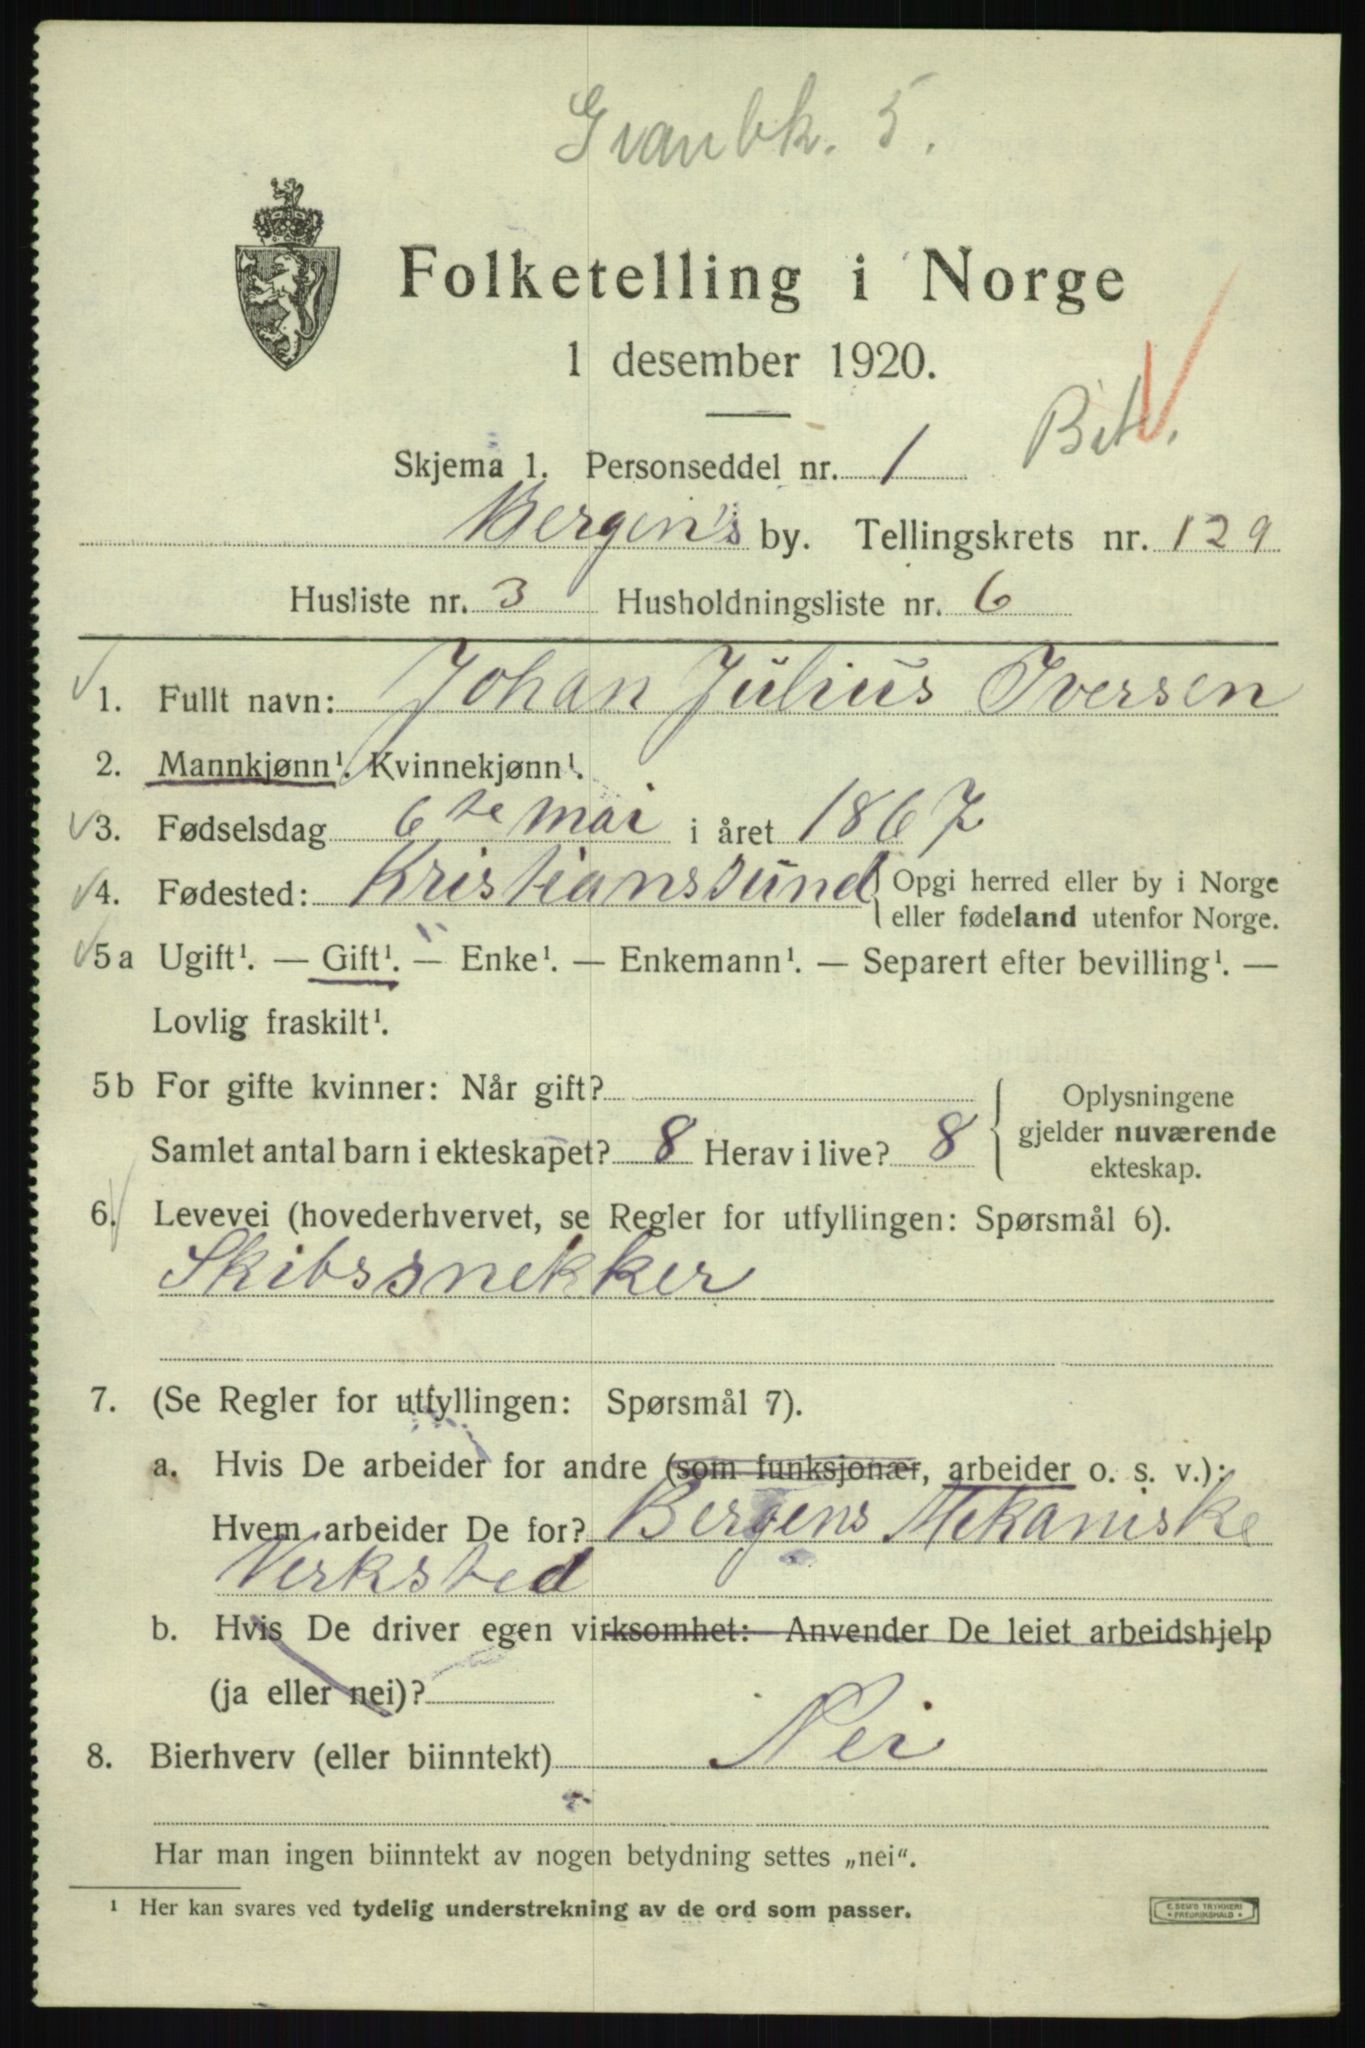 5.
Folketelling i Norge
1 desember 1920.
Skjema 1. Personseddel nr. 1
Bergen's by. Tellingskrets nr. 129
Husliste nr. 3 Husholdningsliste nr. 6
1. Fullt navn: Johan Julius Iversen
2. Mannkjønn¹. Kvinnekjønn¹.
3. Fødselsdag 6te mai i året 1867
4. Fødested: Kristianssund { Opgi herred eller by i Norge
eller fødeland utenfor Norge.
5a Ugift¹. — Gift¹. — Enke¹. — Enkemann¹. — Separert efter bevilling¹. —
Lovlig fraskilt¹.
5b For gifte kvinner: Når gift?
Samlet antal barn i ekteskapet? 8 Herav i live? 8
{ Oplysningene
gjelder nuværende
ekteskap.
6. Levevei (hovederhvervet, se Regler for utfyllingen: Spørsmål 6).
Skibssnekker
7. (Se Regler for utfyllingen: Spørsmål 7).
a. Hvis De arbeider for andre (som funksjonær, arbeider o. s. v.):
Hvem arbeider De for? Bergens Mekaniske
Verksted
b. Hvis De driver egen virksomhet: Anvender De leiet arbeidshjelp
(ja eller nei)?
8. Bierhverv (eller biinntekt) Nei
Har man ingen biinntekt av nogen betydning settes „nei“.
¹ Her kan svares ved tydelig understrekning av de ord som passer.
E. SEM'S TRYKKERI
FREDRIKSHALD